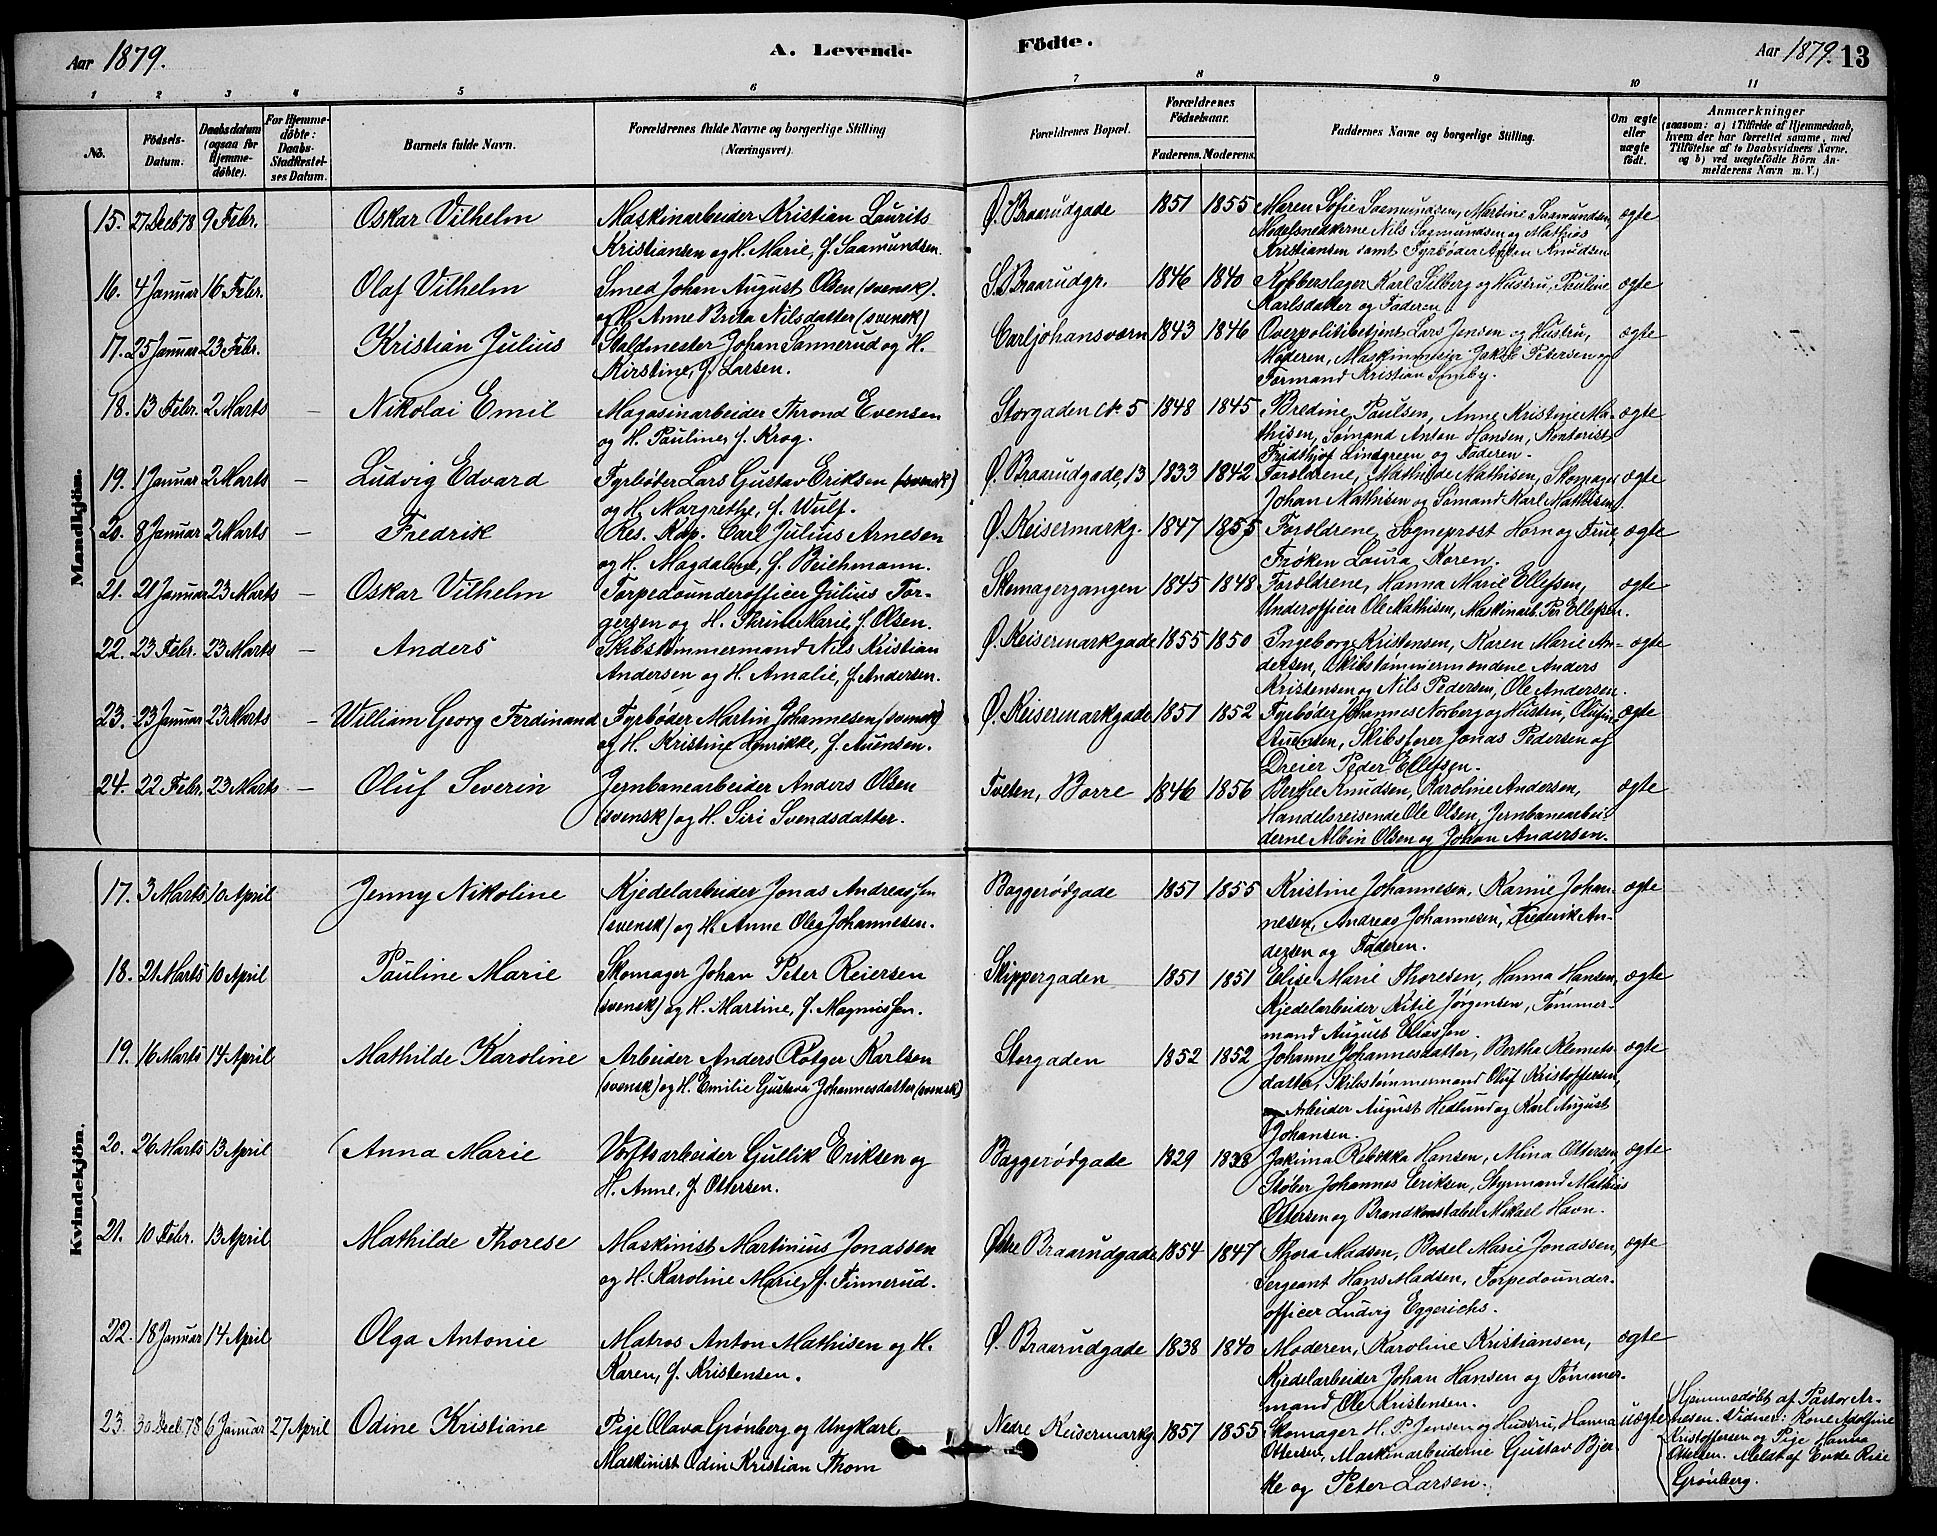 Aar 1879.
A. Levende
Födte.
Aar 1879. 13
1 2 3 4 5 6 7 8 9 10 11
No.
Födsels-Datum.
Daabsdatum (ogsaa for Hjemme-döbte).
For Hjemme-döbte: Daabs-Stadfæstel-ses Datum.
Barnets fulde Navn.
Forældrenes fulde Navne og borgerlige Stilling (Næringsvei).
Forældrenes Bopæl.
Forældrenes Födselsaar.
Faderens. Moderens.
Faddernes Navne og borgerlige Stilling.
Om ægte eller uægte födt.
Anmærkninger
(saasom: a) i Tilfælde af Hjemmedaab, hvem der har forrettet samme, med Tilföielse af to Daabsvidners Navne, og b) ved uægtefödte Börn An-melderens Navn m. V.)
Mandkjön.
15. 27 Decb 78 9 Febr. Oskar Vilhelm Maskinarbeider Kristian Laurits Ø. Braarudgade 1851 1855 Maren Sofie Saamundsen, Martine Saamundsen, ægte
Kristiansen og H. Marie, f. Saamundsen. Modelsnedkerne Nils Saamundsen og Mathias
Kristiansen samt Fyrbøder Anton Knudsen
16. 4 Januar 16 Febr. Olaf Vilhelm Smed Johan August Olsen (svensk). S. Braarudgr. 1846 1840 Kobberslager Karl Silberg og Hustru, Pauline ægte
og H. Anne Brita Nilsdatter (svensk) Karlsdatter og Faderen.
17. 25 Januar 23 Febr. Kristian Julius Staldmester Johan Sannerud og H. Carljohansvern 1843 1846 Overpolitibetjent Lars Jensen og Hustru, ægte
Kirstine, f. Larsen. Moderen, Jakob Petersen og
Formand Kristian
18. 13 Febr. 2 Marts – Nikolai Emil Magasinarbeider Thrond Evensen Storgaden 5 1848 1845 Bredine Paulsen, Anne Kristine Ma- ægte
og H. Pauline, f. Krog. thisen, Sømand Anton Hansen, Kontorist
Fridthjof Lindgreen og Faderen.
19. 1 Januar 2 Marts – Ludvig Edvard Fyrbøter Lars Gustav Eriksen (svensk) Ø. Braarudgade, 13 1833 1842 Foroldrene, Mathilde Mathisen, Skomager ægte
og H. Margrethe, f. Wulf. Johan Mathisen og Sømand Karl Mathisen.
20. 8 Januar 2 Marts – Fredrik Res. Kap. Carl Julius Arnesen Ø. Keisermarkg. 1847 1855 Foroldrene, Sogneprost Horn og Frue, ægte
og H. Magdalene, f. Beichmann. Frøken Laura Koren.
21. 21 Januar 23 Marts – Oskar Vilhelm Torpedounderofficer Julius Tor- Skomagergangen 1845 1848 Foroldrene, Hanna Marie Ellefsen, ægte
gersen og H. Thrine Marie, f. Olsen. Underofficer Ole Mathisen, Maskinarb. Per Ellefsen.
22. 23 Febr. 23 Marts – Anders Skibstømmermand Nils Kristian Ø. Keisermarkgade 1855 1850 Ingeborg Kristensen, Karen Marie An- ægte
Andersen og H. Amalie, f. Andersen. dersen, Skibstømmermændene Anders
Kristensen og Nils Pedersen, Ole Andersen.
23. 23 Januar 23 Marts – William Georg Ferdinand Fyrbøder Martin Johannesen (svensk) Ø. Keisermarkgade 1851 1852 Fyrbøder Johannes Norberg og Hustru, Olufine ægte
og H. Kristine Henrikke, f. Auensen. Auensen, Skibsfører Jonas Pedersen og
Dreier Peder Ellefsen.
24. 22 Febr. 23 Marts – Oluf Severin Jernbanearbeider Anders Olsen Tveten, Borre 1846 1856 Berthe Knudsen, Karoline Andersen, ægte
(svensk) og H. Siri Svendsdatter. Handelsreisende Ole Olsen, Jernbanearbei-
derne Albin Olsen og Johan Andersen.
Kvindekjön.
17. 3 Marts 10 April Jenny Nikoline Kjedelarbeider Jonas Andreassen Baggerødgade 1851 1855 Kristine Johannesen, Karnie Johan- ægte
(svensk) og H. Anne Olea Johannesen. nesen, Andreas Johannesen, Frederik An-
dersen og Faderen.
18. 21 Marts 10 April Pauline Marie Skomager Johan Peter Reiersen Skippergaden 1851 1851 Elise Marie Thoresen, Hanna Hansen, ægte
(svensk) og H. Martine, f. Magnussen. Kjedelarbeider Kitil Jørgensen, Tømmer-
mand August Eliassen.
19. 16 Marts 14 April Mathilde Karoline Arbeider Anders Rotger Karlsen Storgaden 1852 1852 Johanne Johannesdatter, Bertha Klemets- ægte
(svensk) og H. Emilie Gustava Johannesdatter (svensk) datter, Skibstømmermand Oluf Kristoffersen,
Arbeider August Hedlund og Karl August
Johansen.
20. 26 Marts 13 April Anna Marie Værftsarbeider Gullik Eriksen og Baggerødgade 1829 1838 Jakima Rebekka Hansen, Mina Ottersen, ægte
H. Anne, f. Ottersen. Støber Johannes Eriksen, Styrmand Mathias
Ottersen og Brandkonstabel Mikael Havn.
21. 10 Febr. 13 April Mathilde Thorese Maskinist Martinius Jonassen Østre Braarudgade 1854 1847 Thora Madsen, Bodel Marie Jonassen, ægte
og H. Karoline Marie, f. Finnerud. Sergeant Hans Madsen, Torpedounder-
officer Ludvig Eggerichs.
22. 18 Januar 14 April Olga Antonie Matros Anton Mathisen og H. Ø. Braarudgade 1838 1840 Moderen, Karoline Kristiansen, ægte
Karen, f. Kristensen. Kjedelarbeider Johan Hansen og Tømmer-
mand Ole Kristensen.
23. 30 Decb 78 6 Januar 27 April Odine Kristiane Pige Olava Grønberg og Ungkarl Nedre Keisermarkg. 1857 1855 Skomager H. P. Jensen og Hustru, Hanna uægte Hjemmedøbt af Pastor Ar-
Maskinist Odin Kristian Thom Ottersen, Maskinarbeiderne Gustav Bjer- nesen. Vidner: Kone Adolfine
ke og Peter Larsen. Kristoffersen og Pige Hanna
Ottersen. Meldt af Enke
Grønberg.